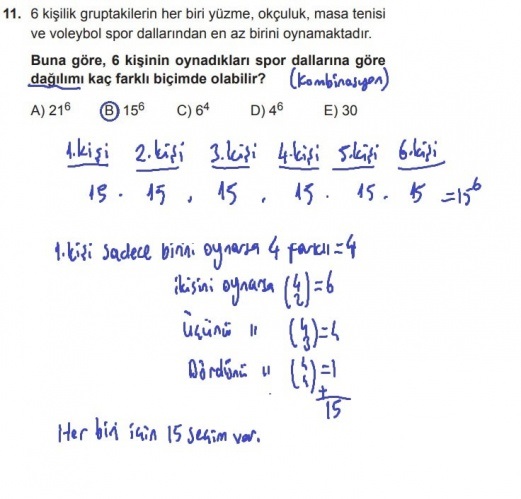 11. 6 kişilik gruptakilerin her biri yüzme, okçuluk, masa tenisi
ve voleybol spor dallarından en az birini oynamaktadır.
Buna göre, 6 kişinin oynadıkları spor dallarına göre
dağılımı kaç farklı biçimde olabilir? (kombinasyon)
A) 21⁶ B) 15⁶ C) 6⁴ D) 4⁶ E) 30
1.kişi 2.kişi 3.kişi 4.kişi 5.kişi 6.kişi
15 . 15 . 15 . 15 . 15 . 15 = 15⁶
1.kişi sadece birini oynarsa 4 farklı = 4
ikisini oynarsa (4 2) = 6
Üçünü " (4 3) = 4
Dördünü " (4 4) = 1
+
15
Her biri için 15 seçim var.